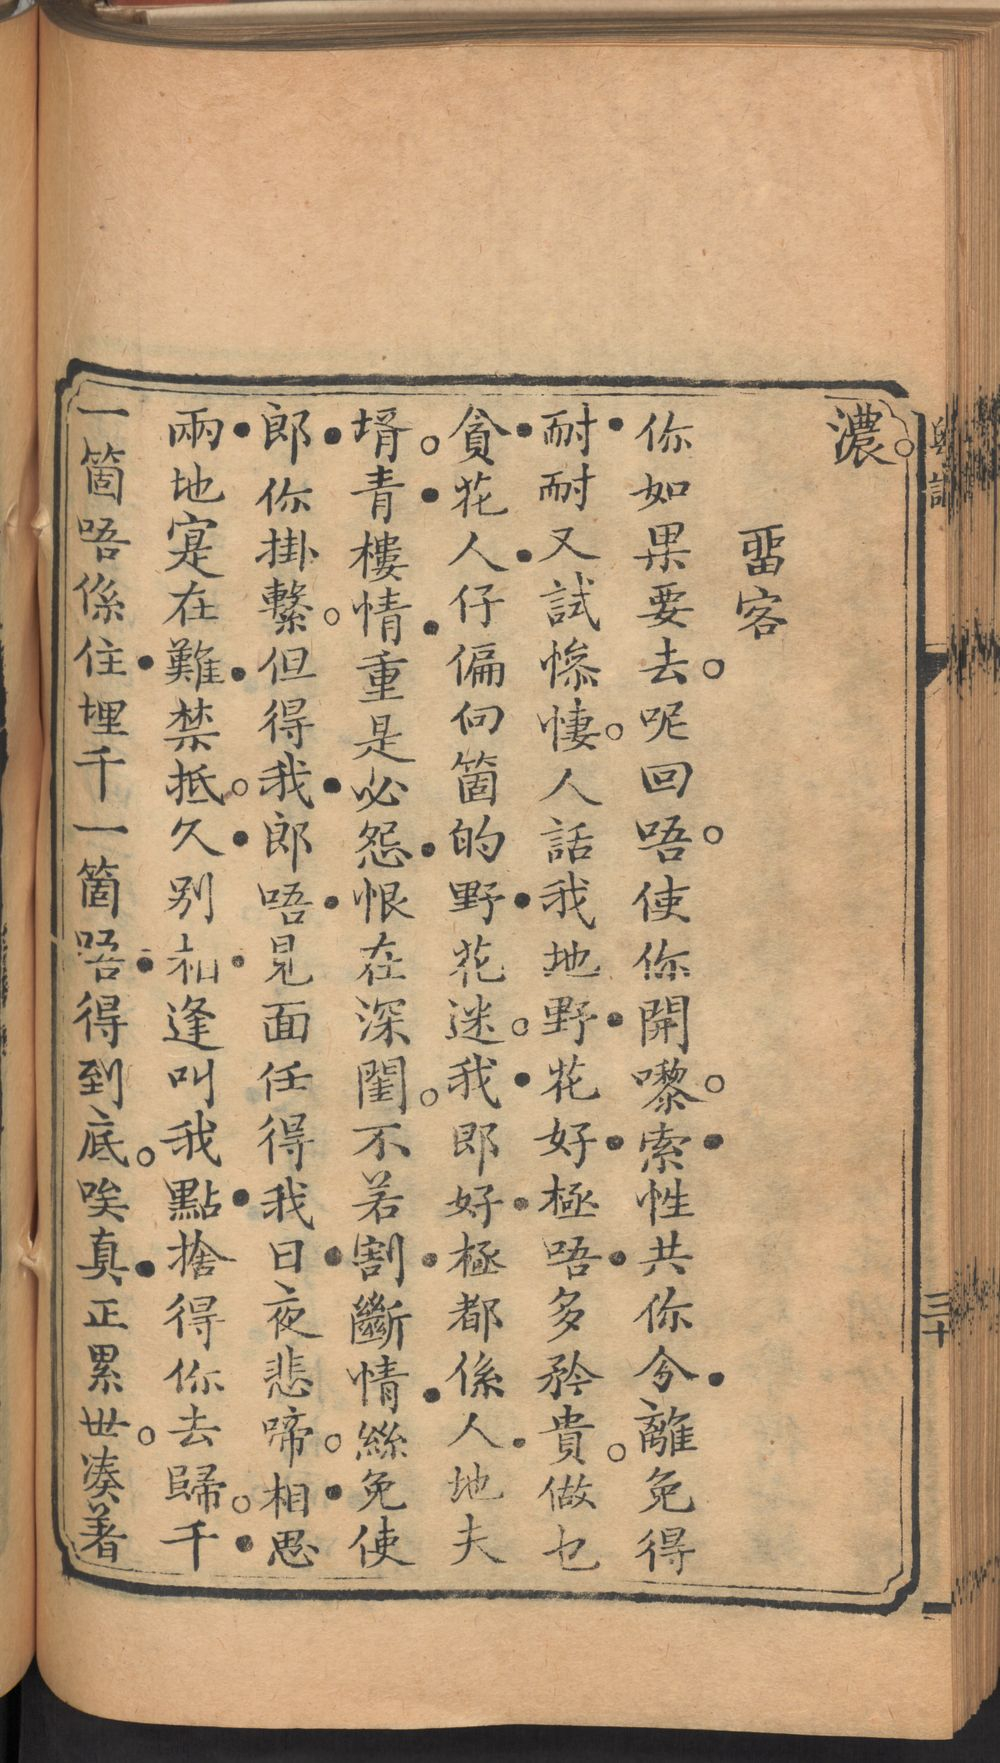 濃
畱客
你如果要去呢回唔使你開嚟索性共你分離免得
耐耐又試慘悽人話我地野花好極唔多矜貴做乜
貪花人仔偏向箇的野花迷我卽好極都係人地夫
壻青樓情重是必怨恨在深閨不若割斷情絲免使
郎你掛繫但得我郎唔見面任得我日夜悲啼相思
兩地寔在難禁抵久别相逢叫我點捨得你去歸千
一箇唔係住埋千一箇唔得到底唉真正累世凑着
三十